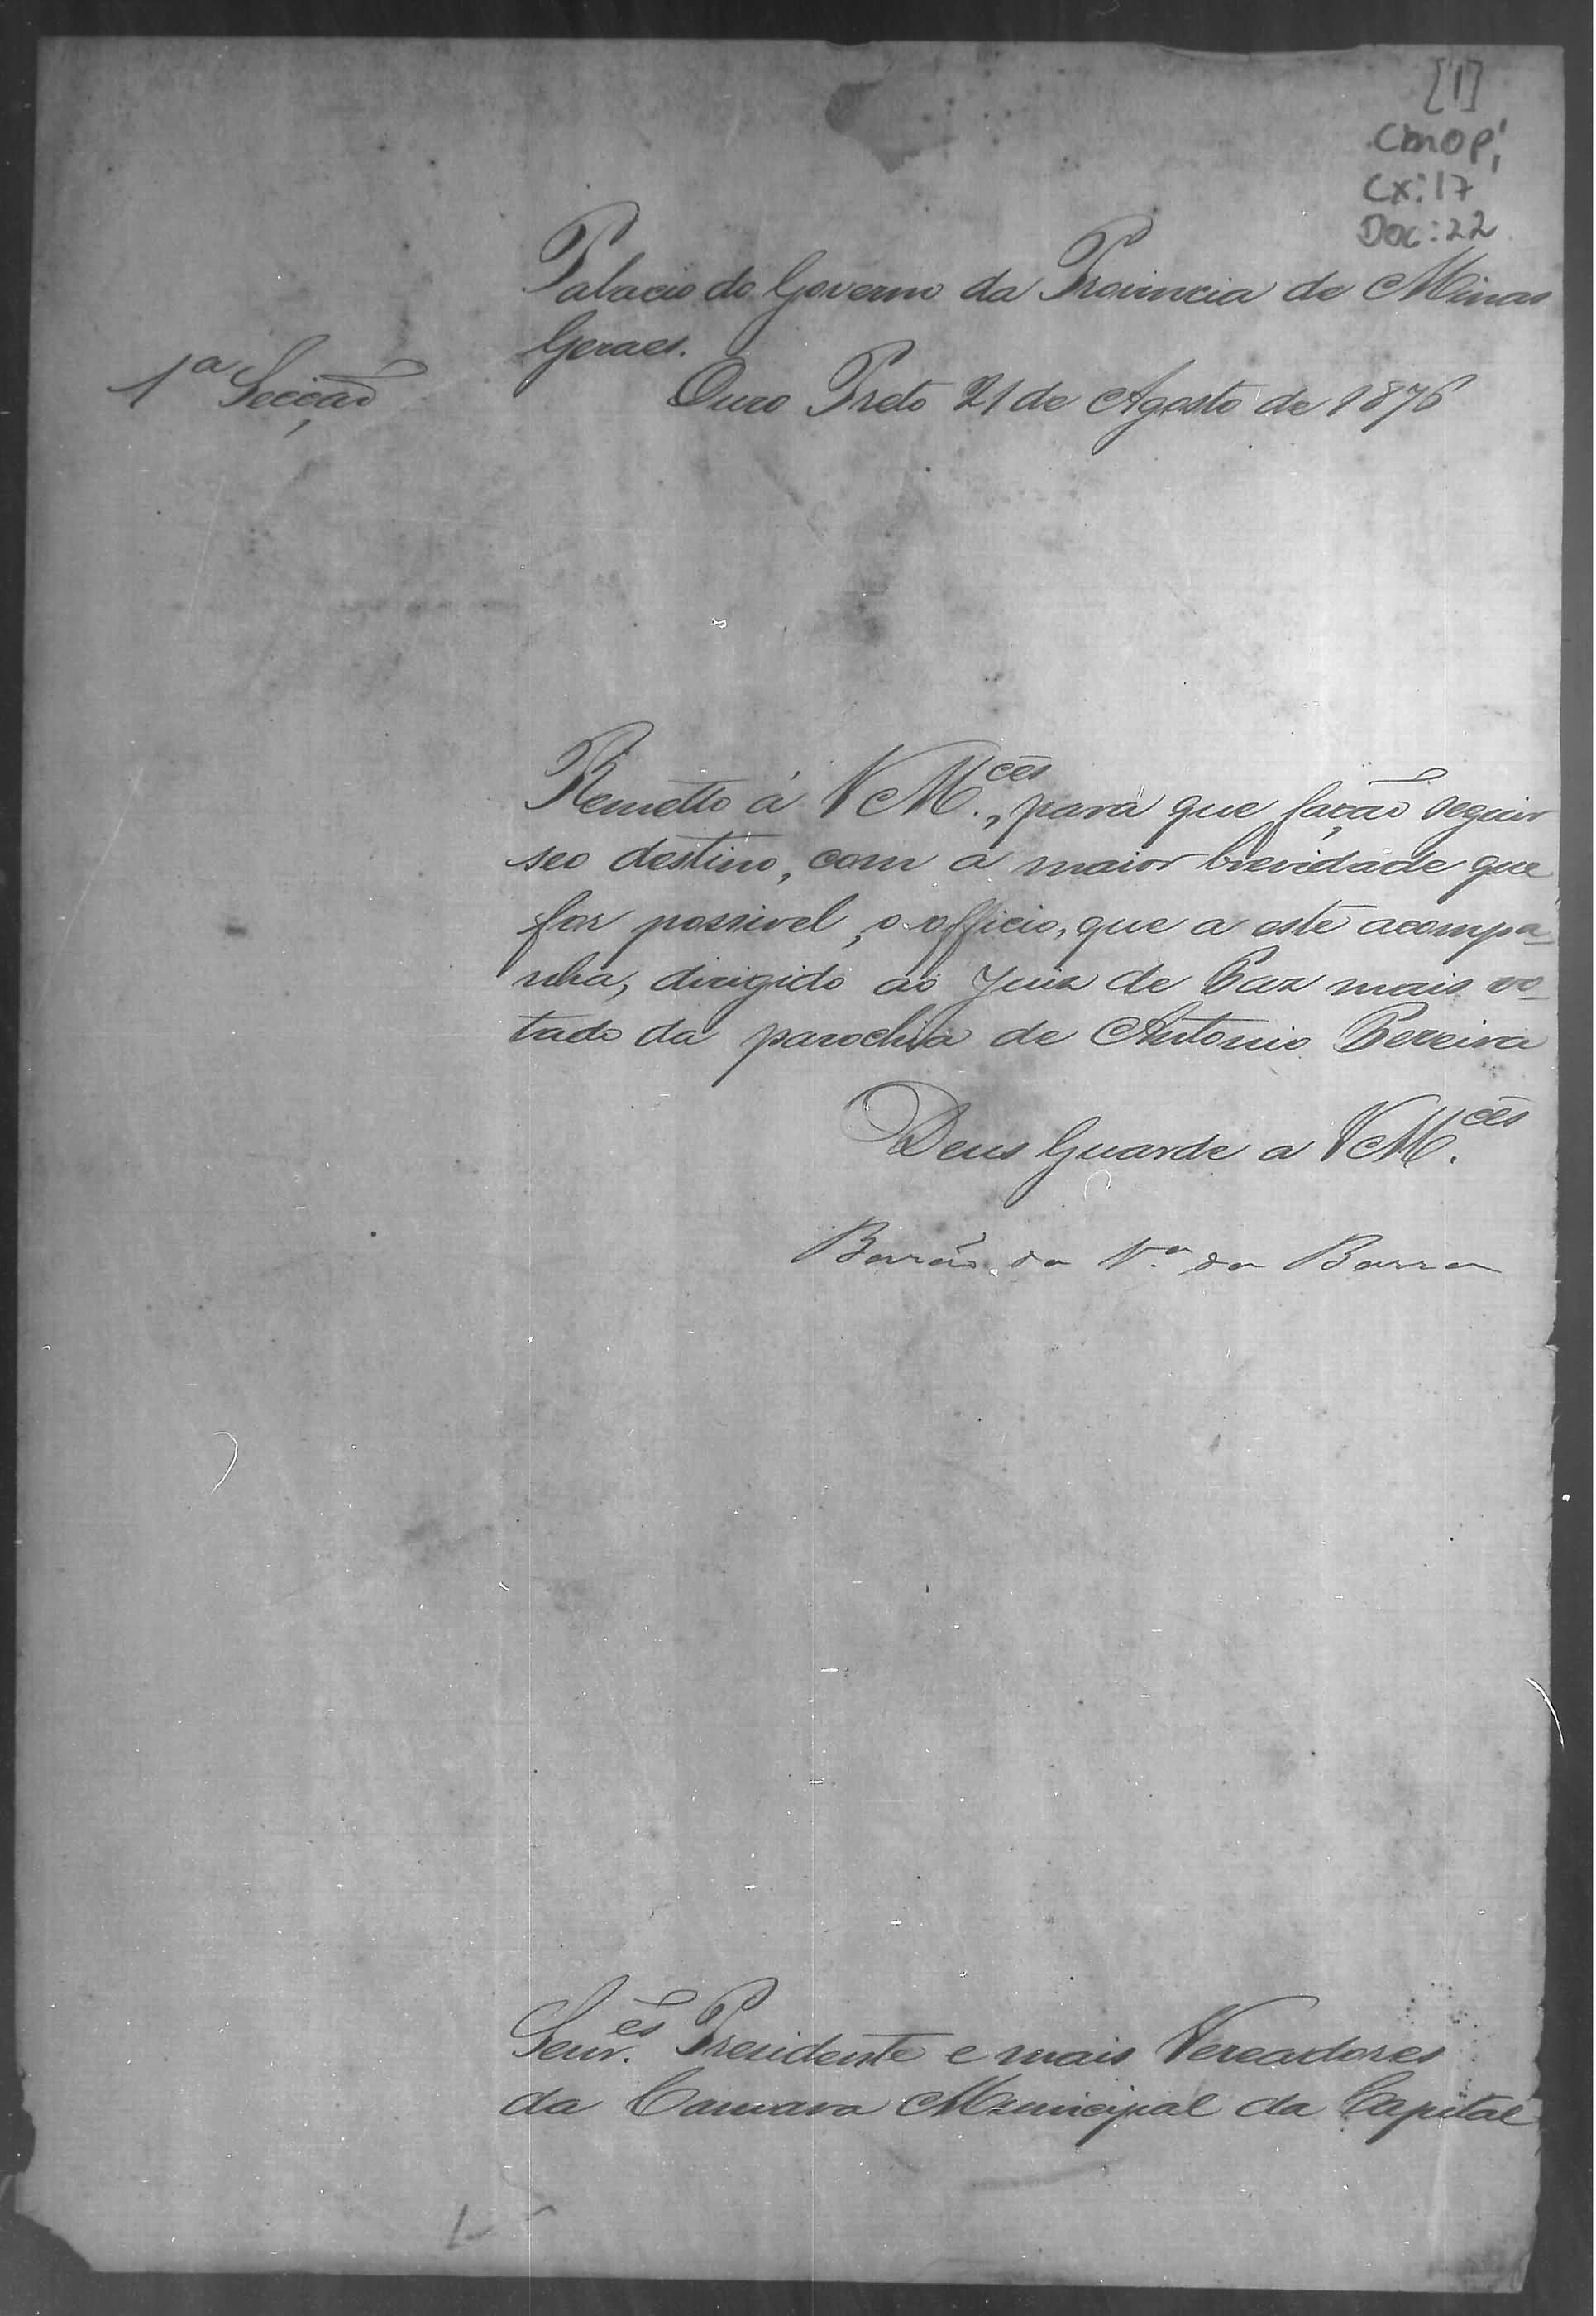 [1]
CMOP,
Cx: 17
Doc: 22
Palacio do Governo da Provincia de Minas
Geraes.
1ª Secção
Ouro Preto 21 de Agosto de 1876
Remetto á VM.ces, para que fação seguir
seo destino, com a maior brevidade que
for possivel, o officio, que a este acompa-
nha, dirigido ao Juiz de Paz mais vo-
tado da parochia de Antonio Pereira
Deus Guarde a VM.ces
Barão da V.ª da Barra
Senr.es Presidente e mais Vereadores
da Camara Municipal da Capital